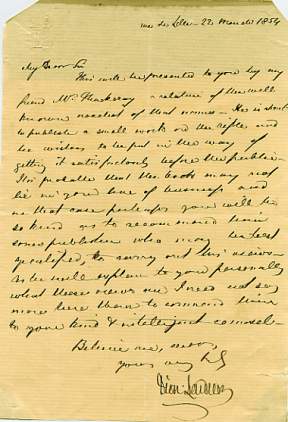 22 March 1854
My Dear Sir
This will be presented to you by my
friend Mr. Thackeray a relative of the well
known novelist of that name - He is about
to publish a small work on the rifle, and
he wishes to be put in the way of
getting it satisfactorily before the public -
It is probable that the book may not
lie in your line of business and
in that case perhaps you will be
so kind as to recommend him
some publisher who may be best
qualified, to carry out his views -
As he will explain to you personally
what these views are I need not say
more here than to commend him
to your kind & intelligent counsel -
Believe me,
yours very